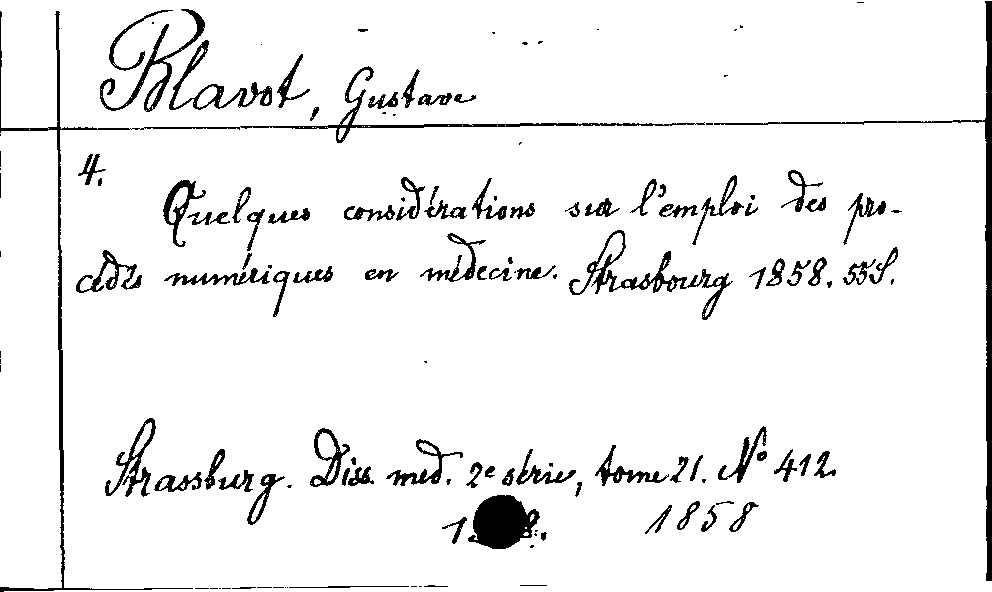 Blavot, Gustave
4.
Quelques considérations sur l'emploi des pro-
cédés numériques en médecine. Strasbourg 1858. 55S.
Strassburg. Diss. med. 2e série, tome 21. No 412.
1858